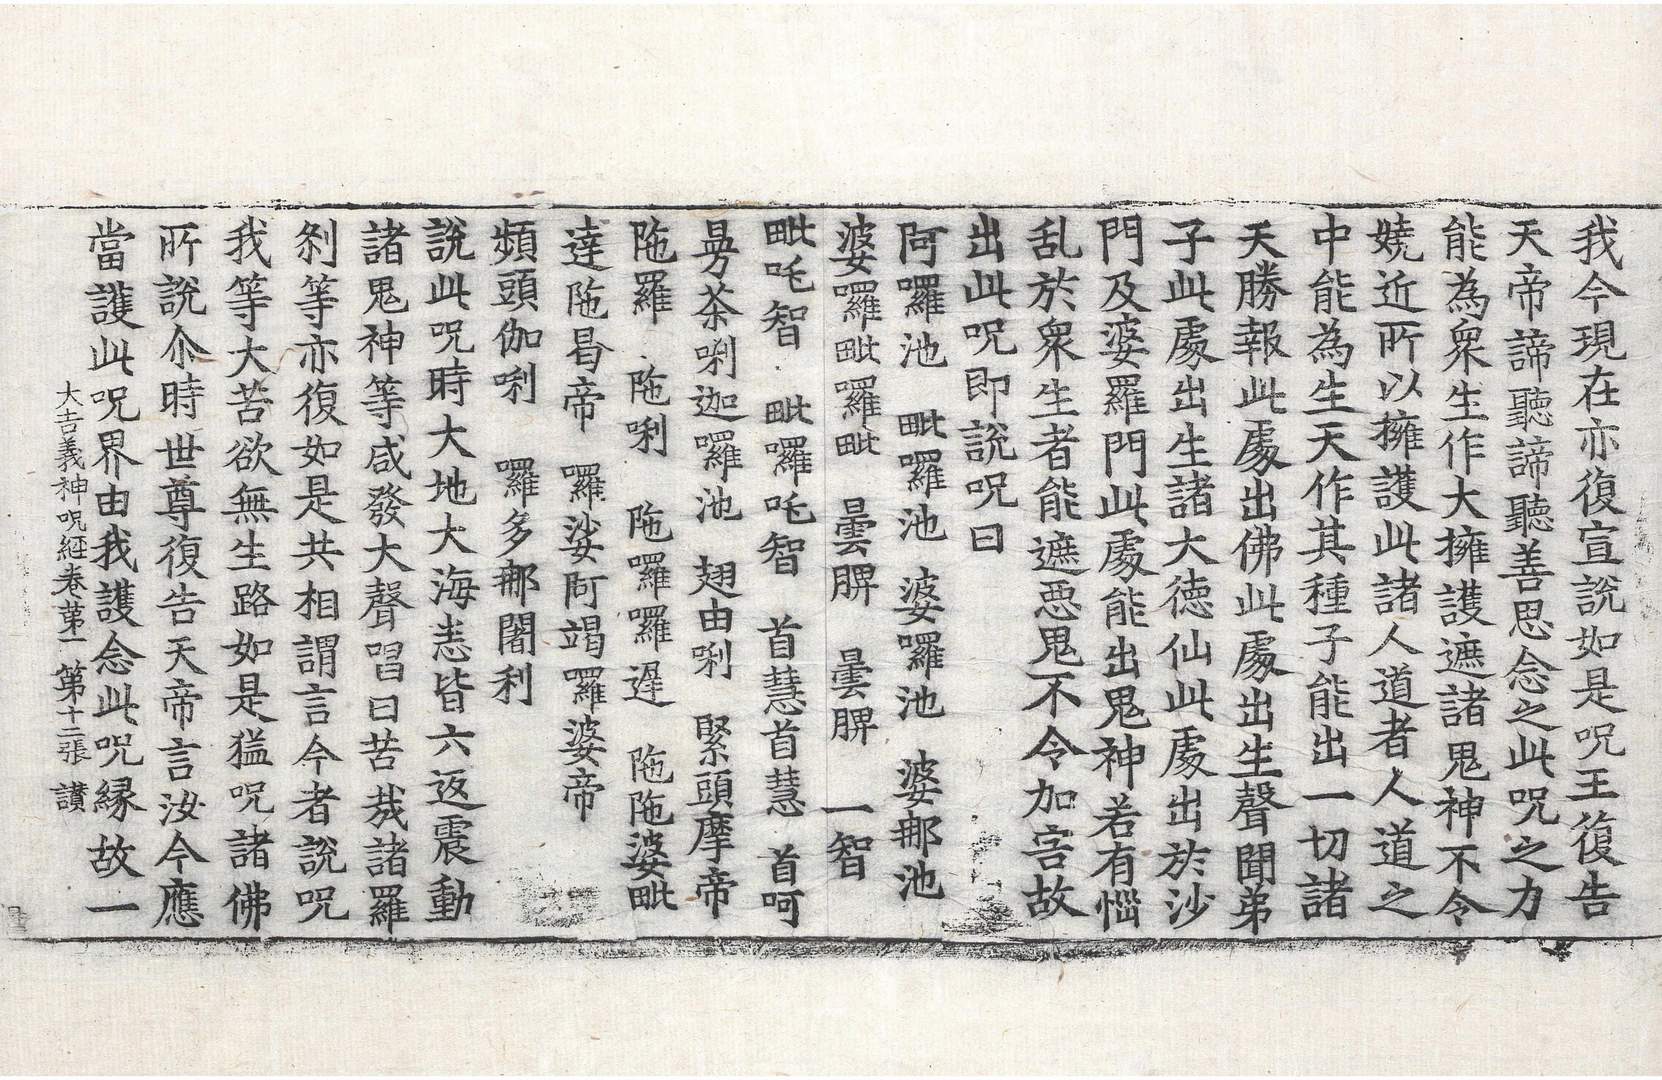 我今現在亦復宣說如是呪王復告
天帝諦聽諦聽善思念之此呪之力
能為衆生作大擁護遮諸鬼神不令
嬈近所以擁護此諸人道者人道之
中能為生天作其種子能出一切諸
天勝報此處出佛此處出生聲聞弟
子此處出生諸大德仙此處出於沙
門及婆羅門此處能出鬼神若有惱
乱於衆生者能遮惡鬼不令加害故
出此呪即說呪曰
阿囉池 毗囉池 婆囉池 婆那池
婆囉毗囉毗 曇髀 曇髀 一智
毗吒智 毗囉吒智 首慧首慧 首呵
昙茶唎迦囉池 翅由唎 緊頭摩帝
陁羅 陁唎 陁囉囉遲 陁陁婆毗
達陁曷帝 囉娑阿竭囉婆帝
頻頭伽唎 囉多那闍利
說此呪時大地大海悉皆六返震動
諸鬼神等咸發大聲唱曰苦哉諸羅
刹等亦復如是共相謂言今者說呪
我等大苦欲無生路如是猛呪諸佛
所說尒時世尊復告天帝言汝今應
當護此呪界由我護念此呪縁故一
大吉義神呪經卷第一 第十二張 讃